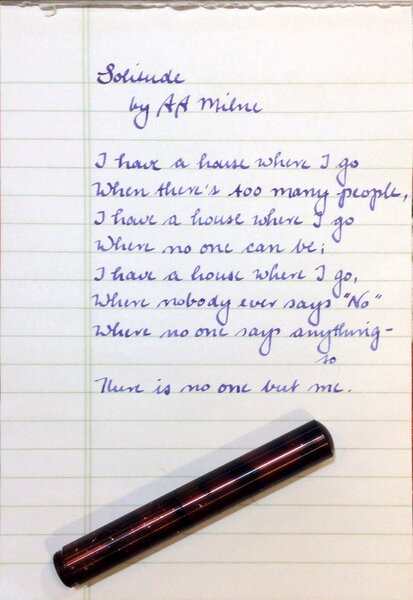 Solitude
by AA Milne
I have a house where I go
When there's too many people,
I have a house where I go
Where no one can be;
I have a house where I go,
Where nobody ever says "No"
Where no one says anything-
so
There is no one but me.